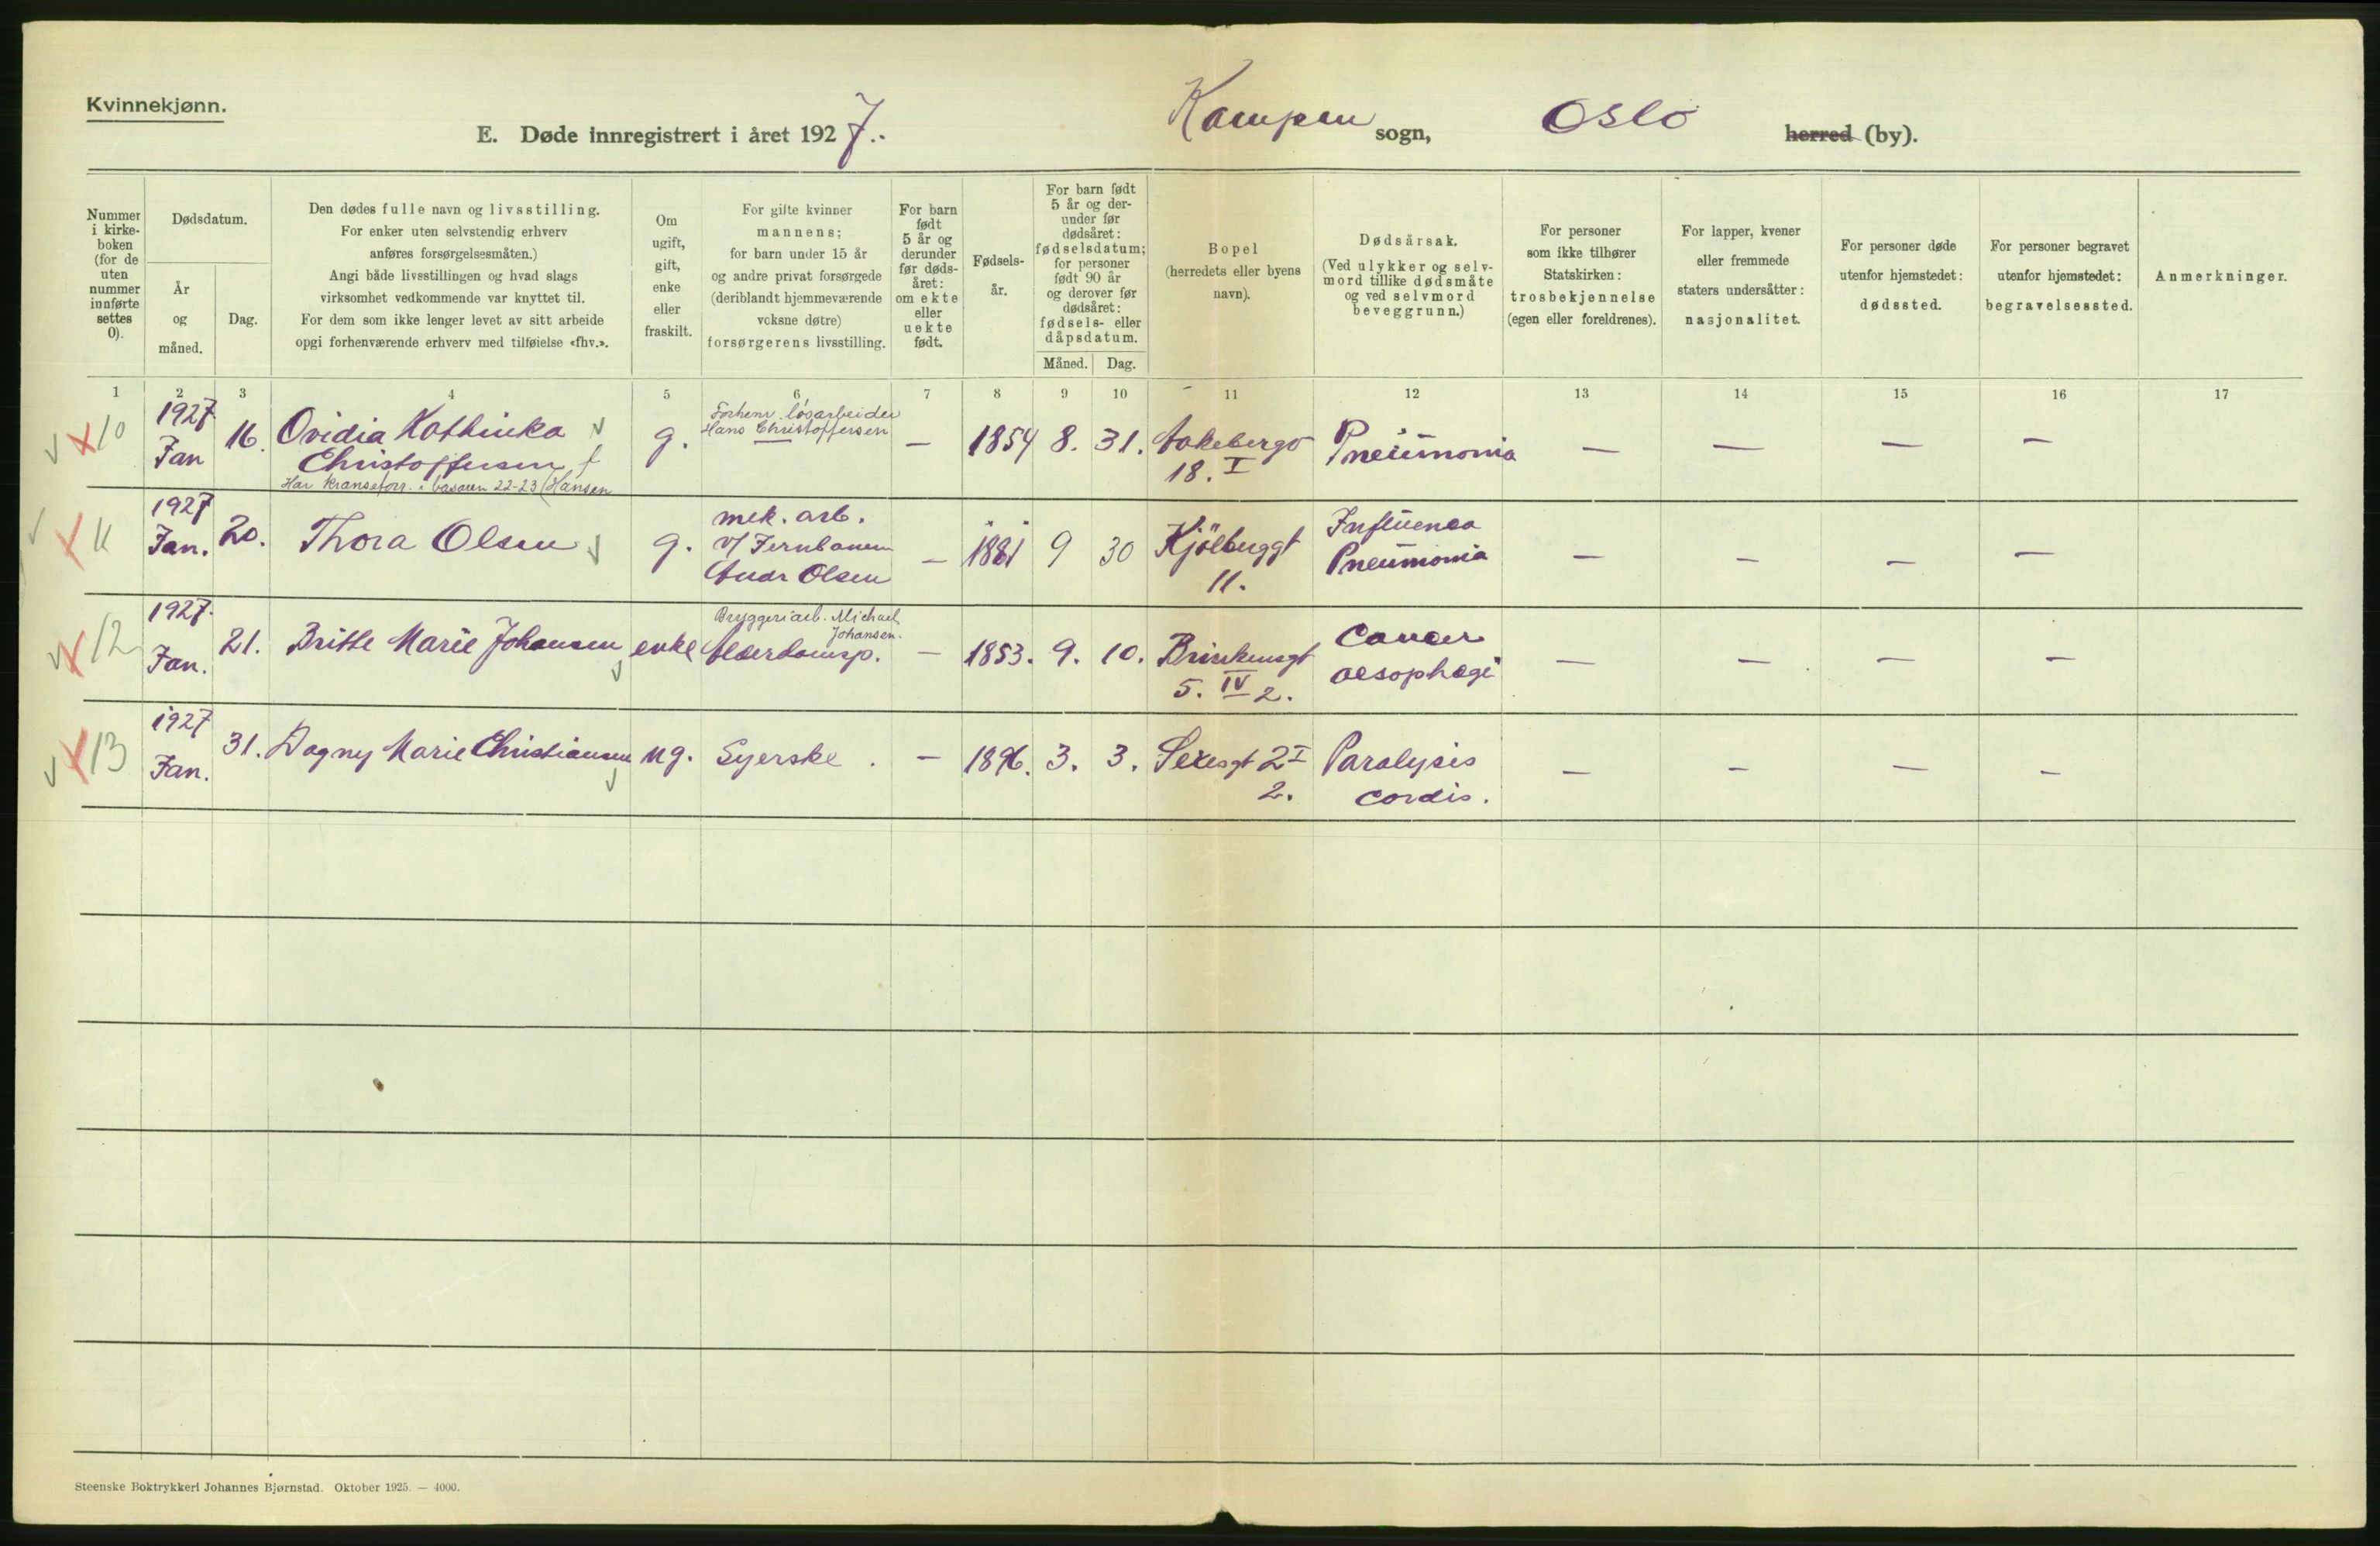 Kvinnekjønn.
E. Døde innregistrert i året 1927. Kampen sogn, Oslo herred (by).
Nummer i kirkeboken (for de uten nummer innførte settes 0).
Dødsdatum.
År og måned.
Dag.
Den dødes fulle navn og livsstilling.
For enker uten selvstendig erhverv
anføres forsørgelsesmåten.)
Angi både livsstillingen og hvad slags
virksomhet vedkommende var knyttet til.
For dem som ikke lenger levet av sitt arbeide
opgi forhenværende erhverv med tilføielse «fhv.».
Om ugift, gift, enke eller fraskilt.
For gifte kvinner
mannens;
for barn under 15 år
og andre privat forsørgede
(deriblandt hjemmeværende
voksne døtre)
forsørgerens livsstilling.
For barn født 5 år og derunder før dødsåret: om ekte eller uekte født.
Fødselsår.
For barn født
5 år og derunder før
dødsåret:
fødselsdatum;
for personer
født 90 år
og derover før
dødsåret:
fødsels- eller
dåpsdatum.
Måned. Dag.
Bopel
(herredets eller byens
navn).
Dødsårsak.
(Ved ulykker og selvmord tillike dødsmåte
og ved selvmord
beveggrunn.)
For personer
som ikke tilhører
Statskirken:
trosbekjennelse
(egen eller foreldrenes).
For lapper, kvener
eller fremmede
staters undersåtter:
nasjonalitet.
For personer døde
utenfor hjemstedet:
dødssted.
For personer begravet
utenfor hjemstedet:
begravelsessted.
Anmerkninger.
1 2 3 4 5 6 7 8 9 10 11 12 13 14 15 16 17
10 1927 Jan 16. Ovidia Kathinka Christoffersen f. Hansen
Har kranseforr. i basaren 22-23
g. Forhenv. løsarbeider Hans Christoffersen — 1854 8. 31. Aakebergv 18. I Pneumonia — — — —
11 1927 Jan. 20. Thora Olsen g. mek. arb. v/ Jernbanen Andr Olsen — 1881 9 30 Kjölberggt 11. Influenca Pneumonia — — — —
12 1927. Jan. 21. Britte Marie Johansen enke Bryggeriarb. Michael Johansen. Alderdomsp. — 1853. 9. 10. Brinkensgt 5. IV 2. Cancer oesophagi — — — —
13 1927 Jan. 31. Dagny Marie Christiansen ug. Syerske. — 1896. 3. 3. Sexesgt 2 I 2. Paralysis cordis. — — — —
Steenske Boktrykkeri Johannes Bjørnstad. Oktober 1925. — 4000.